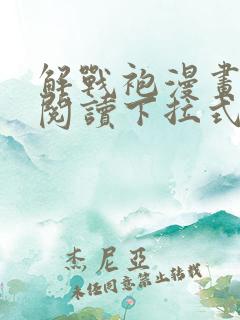 解戰袍漫畫
閱讀下拉式
杰尼亞
未经同意禁止转载